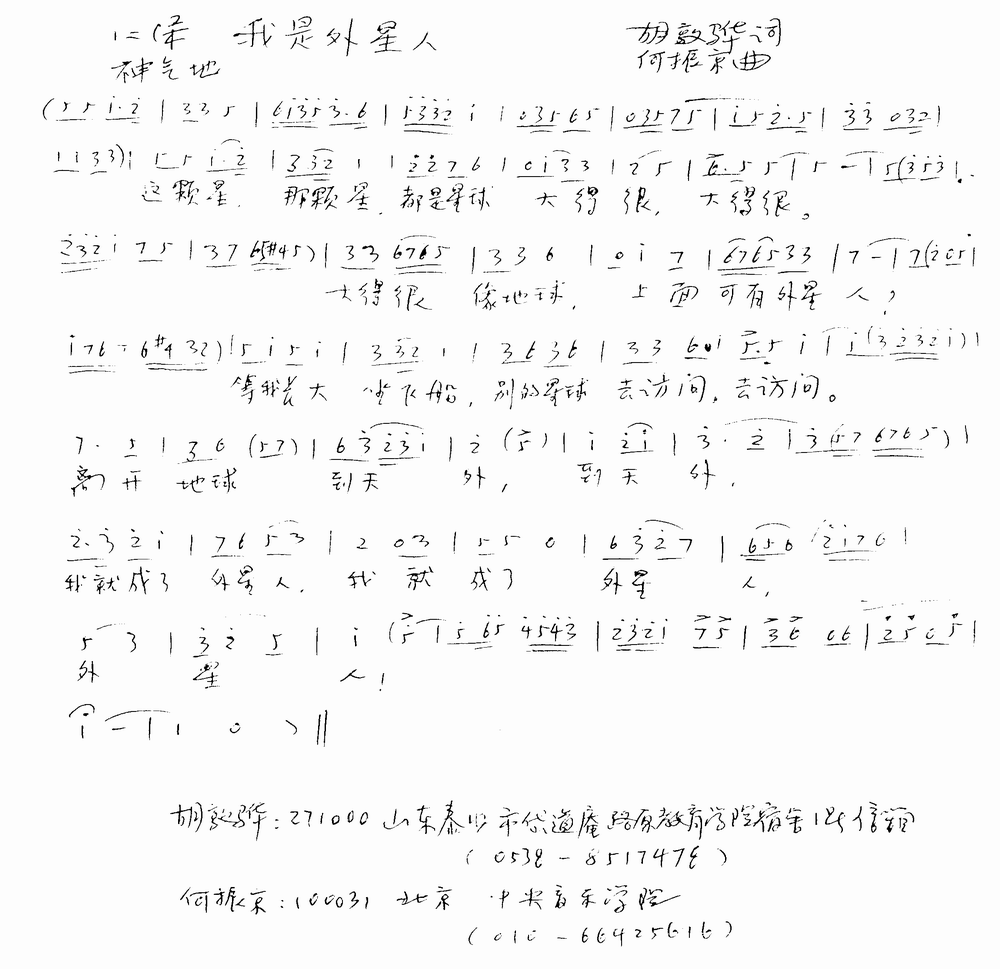 我是外星人 胡敦骅词
神气地 何振京曲
(5 5 i·2 | 3 3 5 | 6i35 3·6 | 5332 i | 03565 | 03575 | i 5 2·5 | 33 032 |
1133)| 5 5 i·2 | 3 32 1 | 2276 | 0i33 | 2 5 | 6·5 5 | 5 - | 5(353 |
这颗星,那颗星,都是星球 大得很,大得很。
232i 75 | 37 65#45) | 33 6765 | 336 | 0 i 7 | 676533 | 7 - | 7(205 |
大得很 像地球,上面可有外星人?
i76 - 6#432) | 5 i 5 i | 3 32 1 | 3636 | 33 6 i | 5·5 i | i(3232i) |
等我长大 坐飞船,别的星球 去访问,去访问。
7· 5 | 36 (57) | 6 323i | 2 (5) | i 2i | 3· 2 | 3(57 6765) |
离开地球 到天外,到天外,
2·3 2i | 76 53 | 2 03 | 55 0 | 6 327 | 656 2i76 |
我就成了 外星人,我就成了 外星人,
5 3 | 3 2 5 | i (5 | 5 65 4543 | 232i 75 | 36 06 | 2505 |
外星人!
i - | 1 0 ) ‖
胡敦骅:271000 山东泰山市岱道庵路原教育学院宿舍1号信箱
(0538-8517478)
何振京:100031 北京 中央音乐学院
(010-66425616)